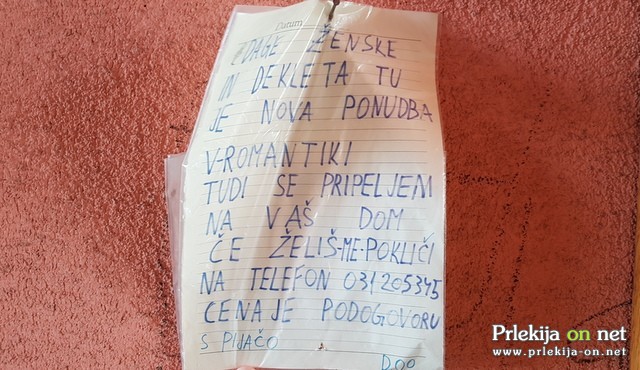 Datum:
DAGE ŽENSKE
IN DEKLETA TU
JE NOVA PONUDBA
V-ROMANTIKI
TUDI SE PRIPELJEM
NA VAŠ DOM
ČE ŽELIŠ-ME-POKLIČI
NA TELEFON 031205345
CENA JE PODOGOVORU
S PIJAČO
DOO
Prlekija on net
www.prlekija-on.net